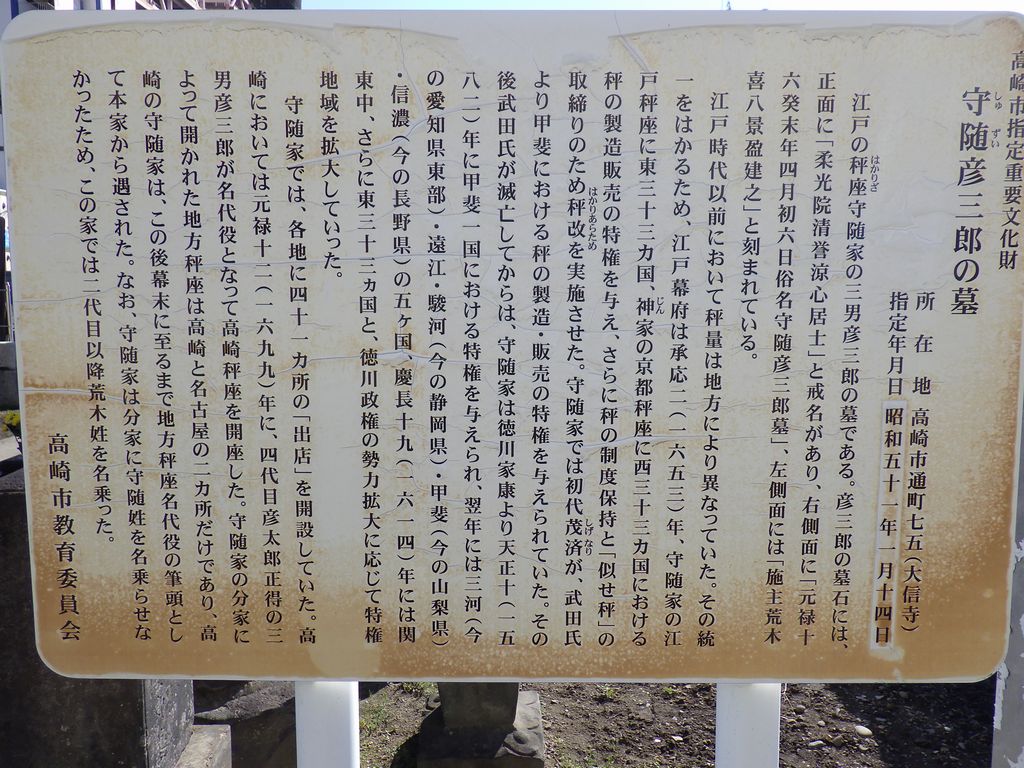 高崎市指定重要文化財
守随彦三郎の墓
しゅ ずい
所在地 高崎市通町七五(大信寺)
指定年月日 昭和五十一年一月十四日
江戸の秤座守随家の三男彦三郎の墓である。彦三郎の墓石には、
はかりざ
正面に「柔光院清誉涼心居士」と戒名があり、右側面に「元禄十
六癸未年四月初六日俗名守随彦三郎墓」、左側面には「施主荒木
喜八景盈建之」と刻まれている。
江戸時代以前において秤量は地方により異なっていた。その統
一をはかるため、江戸幕府は承応二(一六五三)年、守随家の江
戸秤座に東三十三カ国、神家の京都秤座に西三十三カ国における
じん
秤の製造販売の特権を与え、さらに秤の制度保持と「似せ秤」の
取締りのため秤改を実施させた。守随家では初代茂済が、武田氏
はかりあらため
しげなり
より甲斐における秤の製造・販売の特権を与えられていた。その
後武田氏が滅亡してからは、守随家は徳川家康より天正十(一五
八二)年に甲斐一国における特権を与えられ、翌年には三河(今
の愛知県東部)・遠江・駿河(今の静岡県)・甲斐(今の山梨県)
・信濃(今の長野県)の五ヶ国、慶長十九(一六一四)年には関
東中、さらに東三十三ヵ国と、徳川政権の勢力拡大に応じて特権
地域を拡大していった。
守随家では、各地に四十一カ所の「出店」を開設していた。高
崎においては元禄十二(一六九九)年に、四代目彦太郎正得の三
男彦三郎が名代役となって高崎秤座を開座した。守随家の分家に
よって開かれた地方秤座は高崎と名古屋の二カ所だけであり、高
崎の守随家は、この後幕末に至るまで地方秤座名代役の筆頭とし
て本家から遇された。なお、守随家は分家に守随姓を名乗らせな
かったため、この家では二代目以降荒木姓を名乗った。
高崎市教育委員会